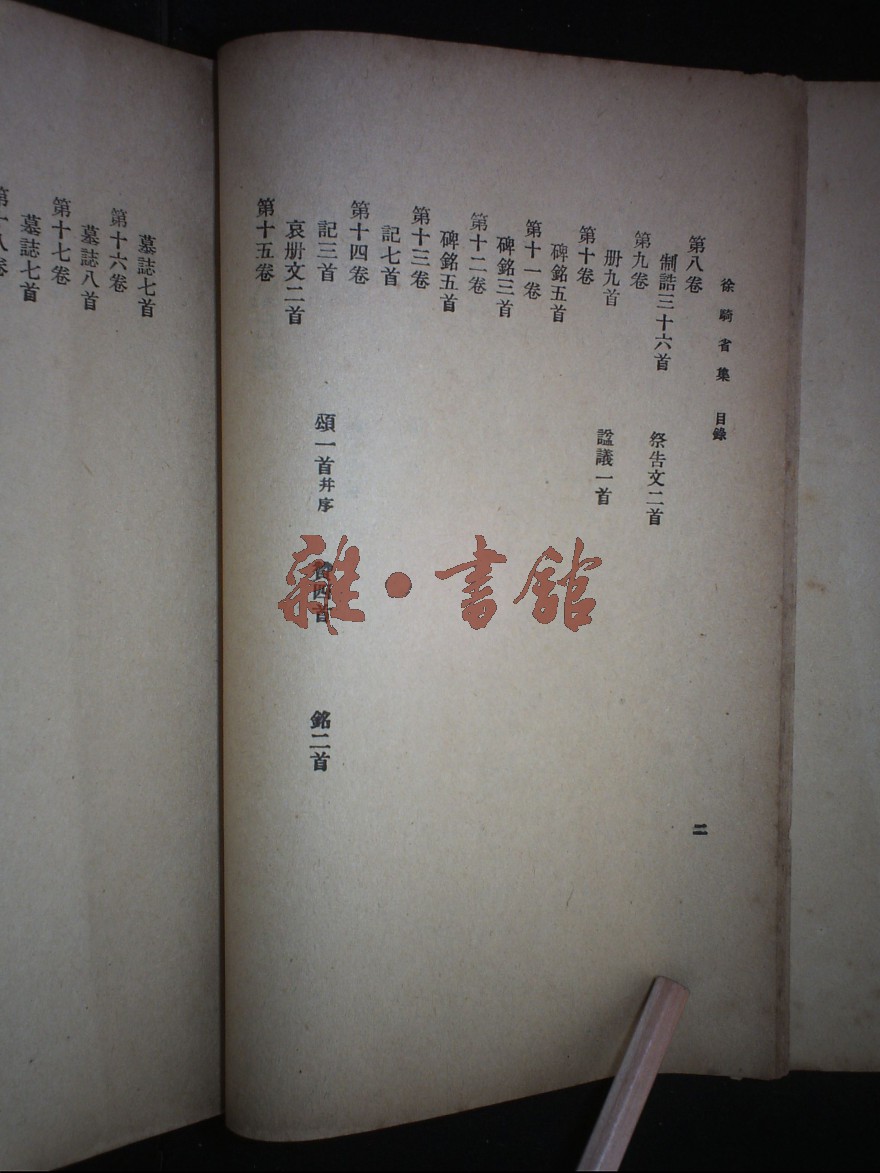 徐騎省集 目錄
二
第八卷
制誥三十六首 祭告文二首
第九卷
冊九首 諡議一首
第十卷
碑銘五首
第十一卷
碑銘三首
第十二卷
碑銘五首
第十三卷
記七首
第十四卷
記三首 頌一首幷序 四首 銘二首
哀冊文二首
第十五卷
墓誌七首
第十六卷
墓誌八首
第十七卷
墓誌七首
第十八卷
雜·書館